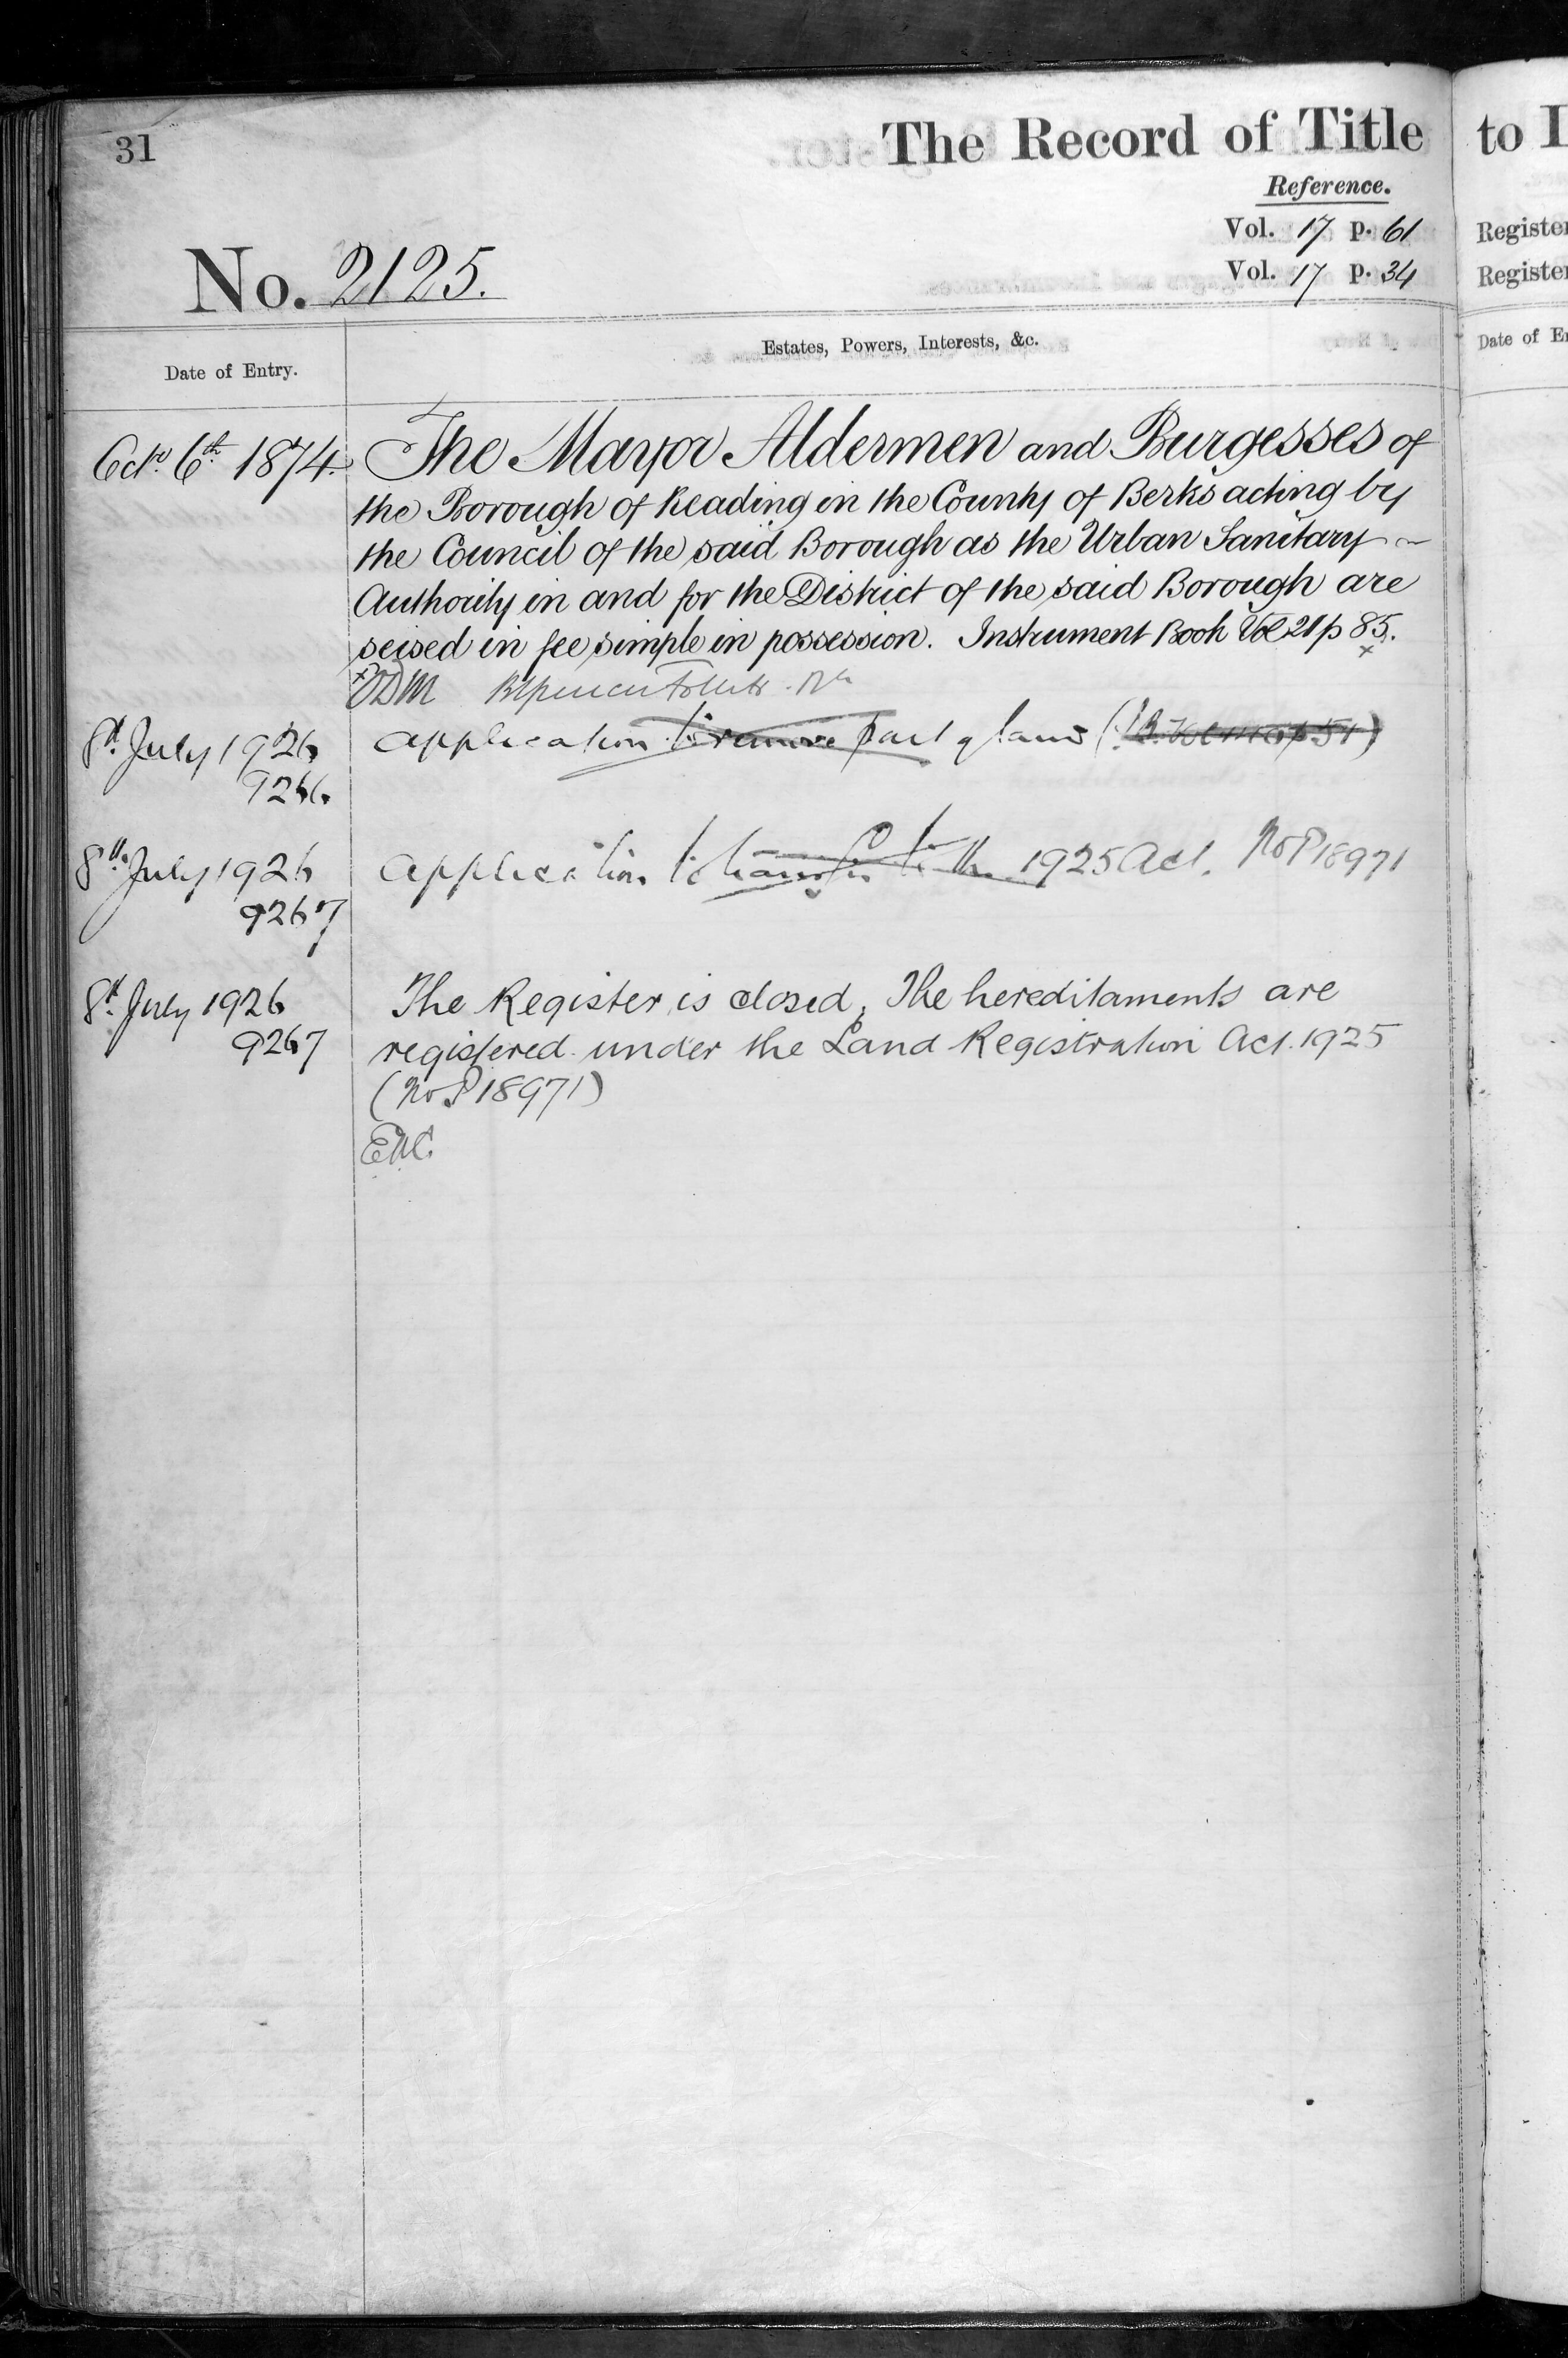 31
The Record of Title
Reference.
Vol. 17 p. 61
Vol. 17 p. 34
No. 2125.
Date of Entry.
Estates, Powers, Interests, &c.
Octr. 6th 1874.
The Mayor Aldermen and Burgesses of
the Borough of Reading in the County of Berks acting by
the Council of the said Borough as the Urban Sanitary
Authority in and for the District of the said Borough are
seised in fee simple in possession. Instrument Book Vol 21 p 85.
8th July 1926
9266
Application to remove part of land
8th July 1926
9267
Application to transfer to the 1925 Act. No P18971
8th July 1926
9267
The Register is closed, The hereditaments are
registered under the Land Registration Act. 1925
(No P18971)
to
Register
Register
Date of